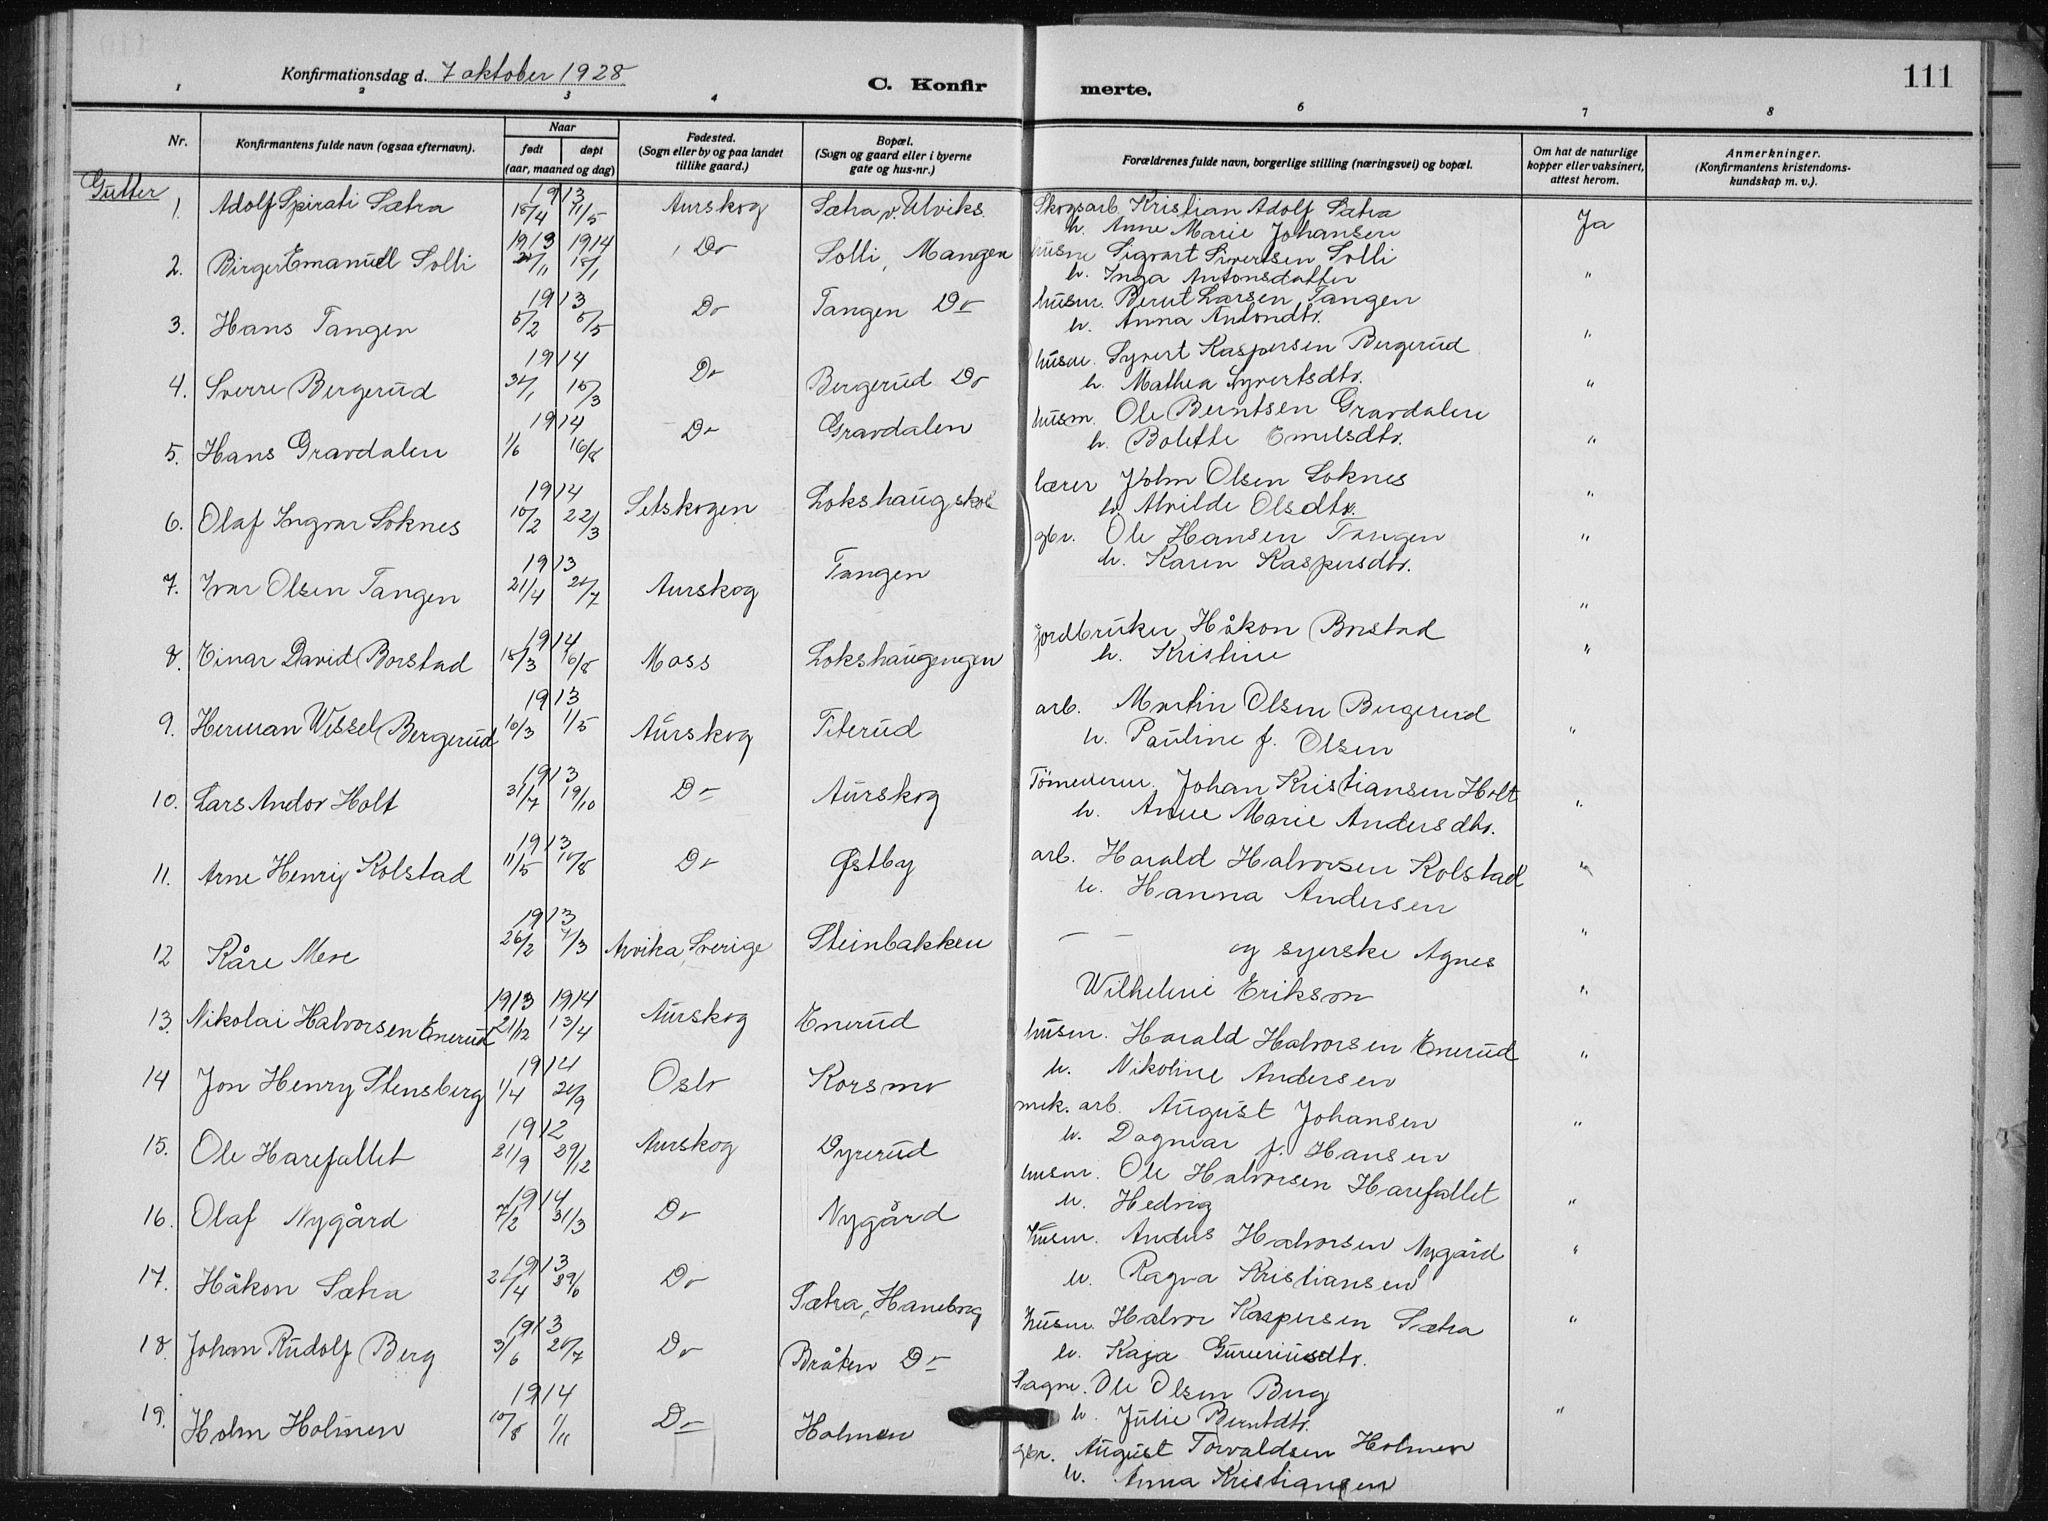 Konfirmationsdag d. 7 oktober 1928
C. Konfirmerte.
111
1 2 3 4 5 6 7 8
Nr. | Konfirmantens fulde navn (ogsaa efternavn). | Naar født døpt (aar, maaned og dag) | Fødested. (Sogn eller by og paa landet tillike gaard.) | Bopæl. (Sogn og gaard eller i byerne gate og hus-nr.) | Forældrenes fulde navn, borgerlige stilling (næringsvei) og bopæl. | Om hat de naturlige kopper eller vaksinert, attest herom. | Anmerkninger. (Konfirmantens kristendomskundskap m. v.).
Gutter
1. Adolf Spirati Sætra 1913 15/4 11/5 Aurskog Sætra v. Ulviks. Skogsarb. Kristian Adolf Sætra Ja
h. Anne Marie Johansen
2. Birger Emanuel Solli 1913 /11 1914 /1 Do Solli, Mangen husm Sigvart Sivertsen Solli "
h. Inga Antonsdatter
3. Hans Tangen 1913 5/2 5/5 Do Tangen Do husm. Bernt Larsen Tangen "
h. Anna Antondtr.
4. Sverre Bergerud 1914 /1 15/3 Do Bergerud Do husm. Syvert Kaspersen Bergerud "
h. Mathea Syvertsdtr.
5. Hans Gravdalen 1914 1/6 16/8 Do Gravdalen husm. Ole Berntsen Gravdalen "
h. Bolette Emilsdtr.
6. Olaf Ingvar Soknes 1914 10/2 22/3 Setskogen Lokshaug skole lærer John Olsen Soknes "
h. Alvilde Olsdtr.
7. Ivar Olsen Tangen 1913 21/4 /7 Aurskog Tangen gbr. Ole Hansen Tangen "
h. Karen Kaspersdtr.
8. Einar David Borstad 1914 15/3 16/8 Moss Lokshaugengen jordbruker Håkon Borstad "
h. Kristine
9. Herman Wessel Bergerud 1913 10/3 1/5 Aurskog Titerud arb. Martin Olsen Bergerud "
h. Pauline f. Olsen
10. Lars Andor Holt 1913 31/7 19/10 Do Aurskog Johan Kristiansen Holt "
h. Anne Marie Andersdtr.
11. Arne Henry Kolstad 1913 11/5 10/8 Do Østby arb. Harald Halvorsen Kolstad "
h. Hanna Andersen
12 Kåre Moe 1913 26/2 /3 Arvika, Sverige Steinbakken — — og syerske Agnes "
Wilhelmine Erikson
13. Nikolai Halvorsen Enerud 1913 21/12 1914 13/4 Aurskog Enerud husm. Harald Halvorsen Enerud "
h. Nikoline Andersen
14 Jon Henry Stensberg 1914 1/4 20/9 Oslo Korsmo mek. arb. August Johansen "
h. Dagmar f. Hansen
15. Ole Harefallet 1912 21/9 29/12 Aurskog Dyrerud husm. Ole Halvorsen Harefallet "
h. Hedvig
16. Olaf Nygård 1914 7/2 31/3 Do Nygård husm. Anders Halvorsen Nygård "
h. Ragna Kristiansen
17. Håkon Sætra 1913 /4 29/6 Do Sætra, Haneborg husm. Halvor Kaspersen Sætra "
h. Kaja Gunneriusdtr.
18. Johan Rudolf Berg 1913 3/6 20/7 Do Bråten Do Sagm. Ole Olsen Berg "
h. Julie Berntdtr.
19. Holm Holmen 1914 10/8 1/11 Do Holmen gbr. August Torvaldsen Holmen
h. Anna Kristiansen